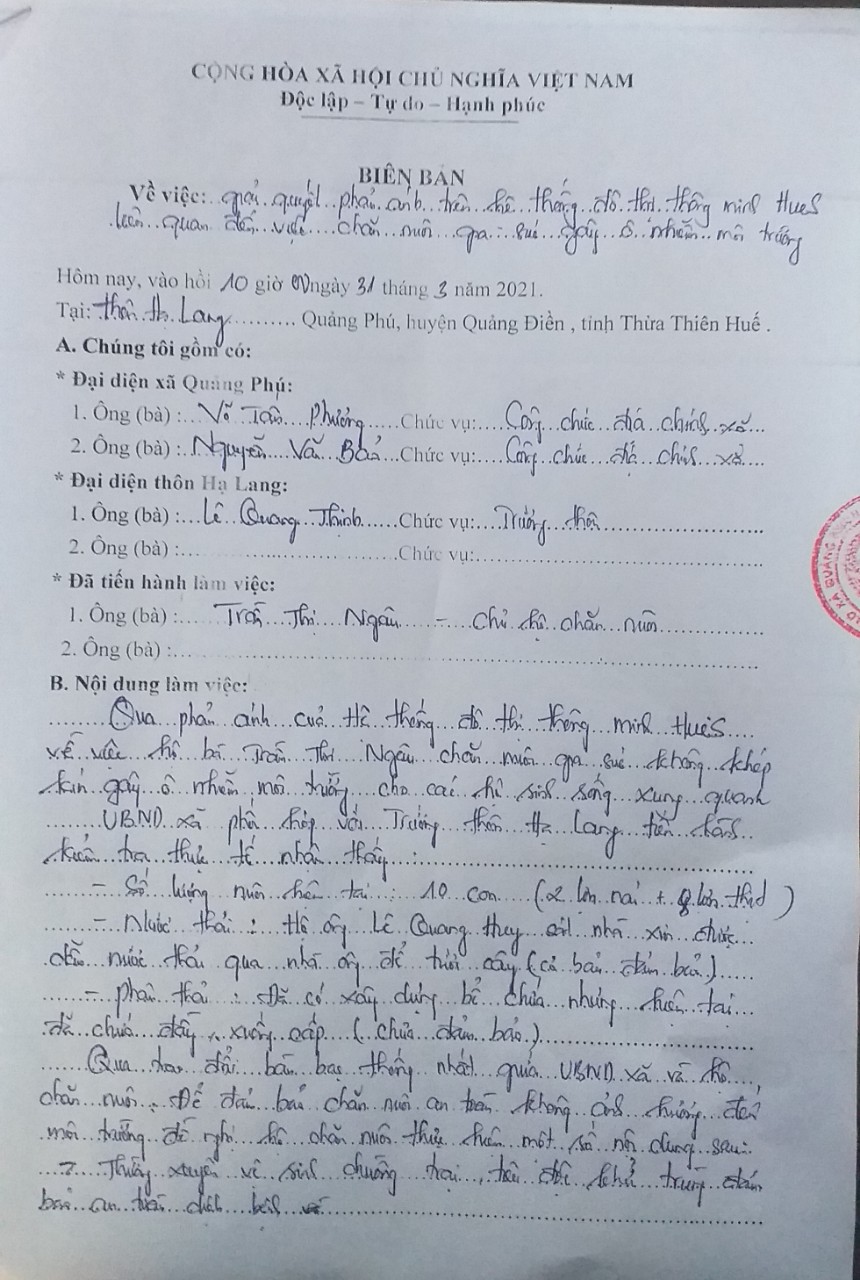 CỘNG HÒA XÃ HỘI CHỦ NGHĨA VIỆT NAM
Độc lập – Tự do – Hạnh phúc
BIÊN BẢN
Về việc: giải quyết phản ánh trên hệ thống đô thị thông minh HueS
liên quan đến việc chăn nuôi gia súc gây ô nhiễm môi trường
Hôm nay, vào hồi 10 giờ 00 ngày 31 tháng 3 năm 2021.
Tại: thôn Hạ Lang............ Quảng Phú, huyện Quảng Điền , tỉnh Thừa Thiên Huế .
A. Chúng tôi gồm có:
* Đại diện xã Quảng Phú:
1. Ông (bà) :...Võ Tấn Phương.....Chức vụ:....Công chức địa chính xã...
2. Ông (bà) :..Nguyễn Văn Bảo...Chức vụ:....Công chức địa chính xã
* Đại diện thôn Hạ Lang:
1. Ông (bà) :...Lê Quang Thịnh......Chức vụ:...Trưởng thôn....................
2. Ông (bà) :.......................................Chức vụ:.......................................
* Đã tiến hành làm việc:
1. Ông (bà) :.....Trần Thị Ngân – chủ hộ chăn nuôi................
2. Ông (bà) :...............................................................................
B. Nội dung làm việc:
.........Qua phản ánh của Hệ thống đô thị thông minh HueS....
về việc hộ bà Trần Thị Ngân chăn nuôi gia súc không khép
kín gây ô nhiễm môi trường cho các hộ sinh sống xung quanh
.........UBND xã phối hợp với Trưởng thôn Hạ Lang tiến hành
kiểm tra thực tế nhận thấy :............................................
.........– Số lượng nuôi hiện tại : 10 con (2 lợn nái + 8 lợn thịt)
.........– Nước thải : Hộ ông Lê Quang Huy nhà xin được...
dẫn nước thải qua nhà ông để tưới cây (có bản đảm bảo).....
.........– phân thải : Đã có xây dựng bể chứa nhưng hiện tại...
đã chứa đầy, xuống cấp (chưa đảm bảo)...............................
.........Qua trao đổi bàn bạc thống nhất giữa UBND xã và hộ...,
chăn nuôi. Để đảm bảo chăn nuôi an toàn không ảnh hưởng đến
môi trường đề nghị hộ chăn nuôi thực hiện một số nội dung sau:
Thường xuyên vệ sinh chuồng trại, tiêu độc khử trùng đảm
bảo an toàn dịch bệnh